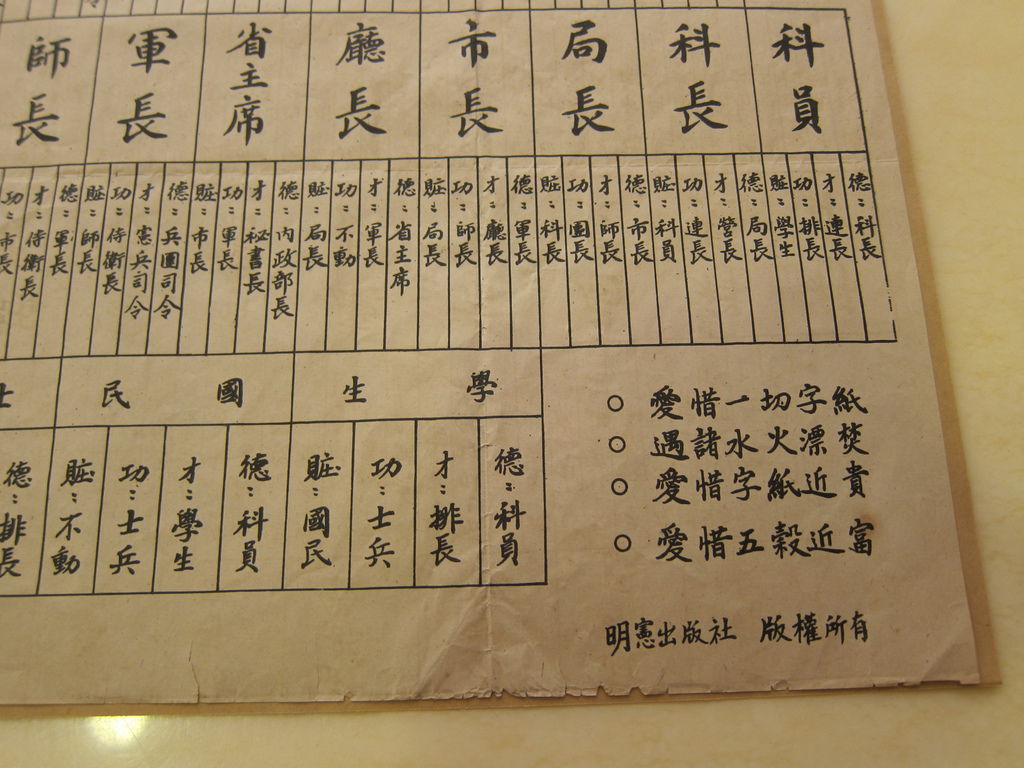 科員
德：科長
才：連長
功：排長
賍：學生
科長
德：局長
才：營長
功：連長
賍：科員
局長
德：市長
才：師長
功：團長
賍：科長
市長
德：軍長
才：廳長
功：師長
賍：局長
廳長
德：省主席
才：軍長
功：不動
賍：局長
省主席
德：內政部長
才：秘書長
功：軍長
賍：市長
軍長
德：兵團司令
才：憲兵司令
功：侍衛長
賍：師長
師長
德：軍長
才：侍衛長
功：市長
學生
德：科員
才：排長
功：士兵
賍：國民
國民
德：科員
才：學生
功：士兵
賍：不動
士
德：排長
○ 愛惜一切字紙
○ 遇諸水火漂焚
○ 愛惜字紙近貴
○ 愛惜五穀近富
明憲出版社 版權所有